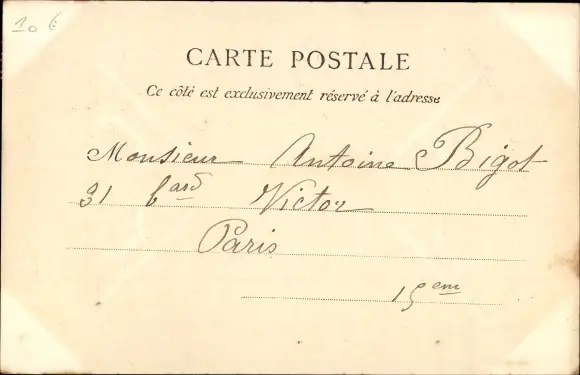 10 €
CARTE POSTALE
Ce côté est exclusivement réservé à l'adresse
Monsieur Antoine Bigot
31 bard Victor
Paris
15em